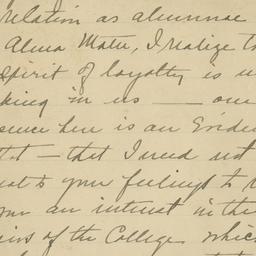 relation as alumnae
Alma Mater, I realize to
spirit of loyalty is
king in us — our
sence here is an Eviden
— that I need not
to your feelings to
an interest in the
irs of the College which